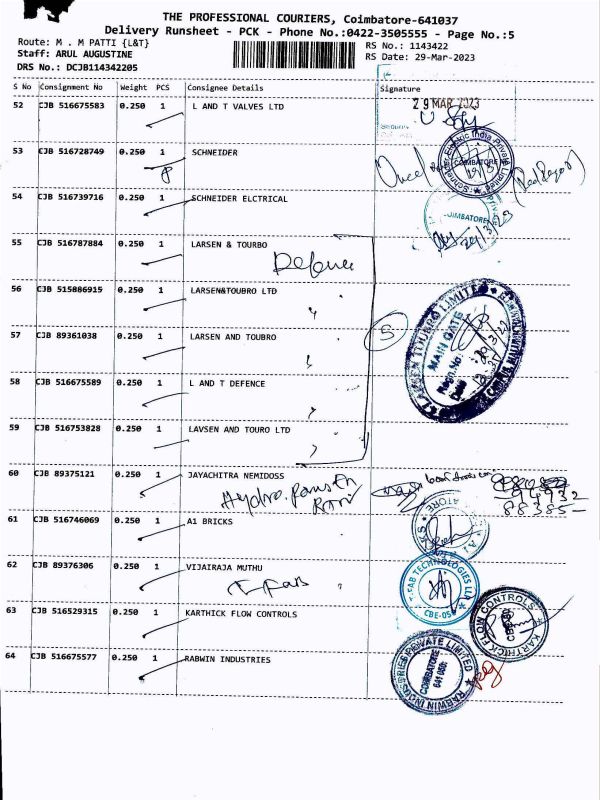 THE PROFESSIONAL COURIERS, Coimbatore-641037
Delivery Runsheet - PCK - Phone No.:0422-3505555 - Page No.:5
Route: M . M PATTI {L&T}
RS No.: 1143422
Staff: ARUL AUGUSTINE
RS Date: 29-Mar-2023
DRS No.: DCJB114342205
S No Consignment No Weight PCS Consignee Details Signature
52 CJB 516675583 0.250 1 L AND T VALVES LTD
29 MAR 2023
53 CJB 516728749 0.250 1 SCHNEIDER
COIMBATORE
54 CJB 516739716 0.250 1 SCHNEIDER ELCTRICAL
COIMBATORE
55 CJB 516787884 0.250 1 LARSEN & TOURBO
Defence
56 CJB 515886915 0.250 1 LARSEN&TOUBRO LTD
57 CJB 89361038 0.250 1 LARSEN AND TOUBRO
5
LARSEN TOUBRO LIMITED
MAIN GATE
58 CJB 516675589 0.250 1 L AND T DEFENCE
59 CJB 516753828 0.250 1 LAVSEN AND TOURO LTD
60 CJB 89375121 0.250 1 JAYACHITRA NEMIDOSS
Hydro
94932
88385
61 CJB 516746069 0.250 1 A1 BRICKS
62 CJB 89376306 0.250 1 VIJAIRAJA MUTHU
FAB TECHNOLOGIES LLP
CBE-05
63 CJB 516529315 0.250 1 KARTHICK FLOW CONTROLS
KARTHICK FLOW CONTROLS
64 CJB 516675577 0.250 1 RABWIN INDUSTRIES
RABWIN INDUSTRIES PRIVATE LIMITED
COIMBATORE